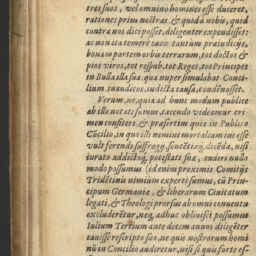 res suos, vel omnino homines esse duceret,
rationes prius nostras, & quid à nobis, quid
contra nos dici posset, diligenter expendisset:
ac non ita temerè cæcis tantùm præiudicijs,
bonam partem orbis terrarum, tot doctos &
pios viros, tot respub. tot Reges, tot Principes
in Bulla illa sua, qua nuper simulabat Conci-
lium, inauditos, indicta causa, condēnasset.
Verum, ne, quia ad hunc modum publicè
ab illo notati sumus, tacendo videamur cri-
men confiteri, & præsertim quia in Publico
Cōcilio, in quo ille nemini mortalium ius esse
vult ferendi suffragij, sentētiæq́; dicēdæ, nisi
iurato addictoq́; potestati suæ, audiri nullo
modo possumus (id enim proximis Comitijs
Tridētinis nimium experti sumus, cū Prin-
cipum Germaniæ, & liberarum Ciuitatum
legati, & Theologi prorsus ab omni conuentu
excluderētur, neq; adhuc obliuisci possumus
Iulium Tertium ante decem annos diligēter
cauisse rescripto suo, ne quis nostrorum homi
nū in Concilio audiretur, nisi si quis forte es-